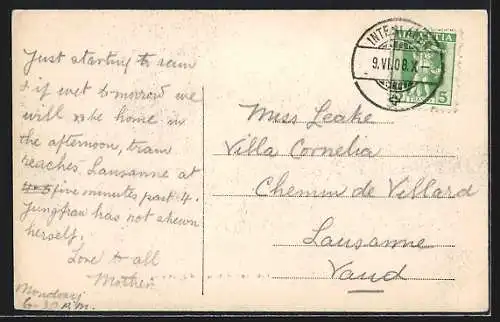 Just starting to rain
& if wet tomorrow we
will be home in
the afternoon, train
reaches Lausanne at
five minutes past 4.
Jungfrau has not shewn
herself.
Love to all
Mother
Monday
6-30 P.M.
INTERLAKEN
9.VI.08.X
HELVETIA
5
FRANCO
Miss Leake
Villa Cornelia
Chemin de Villard
Lausanne
Vaud